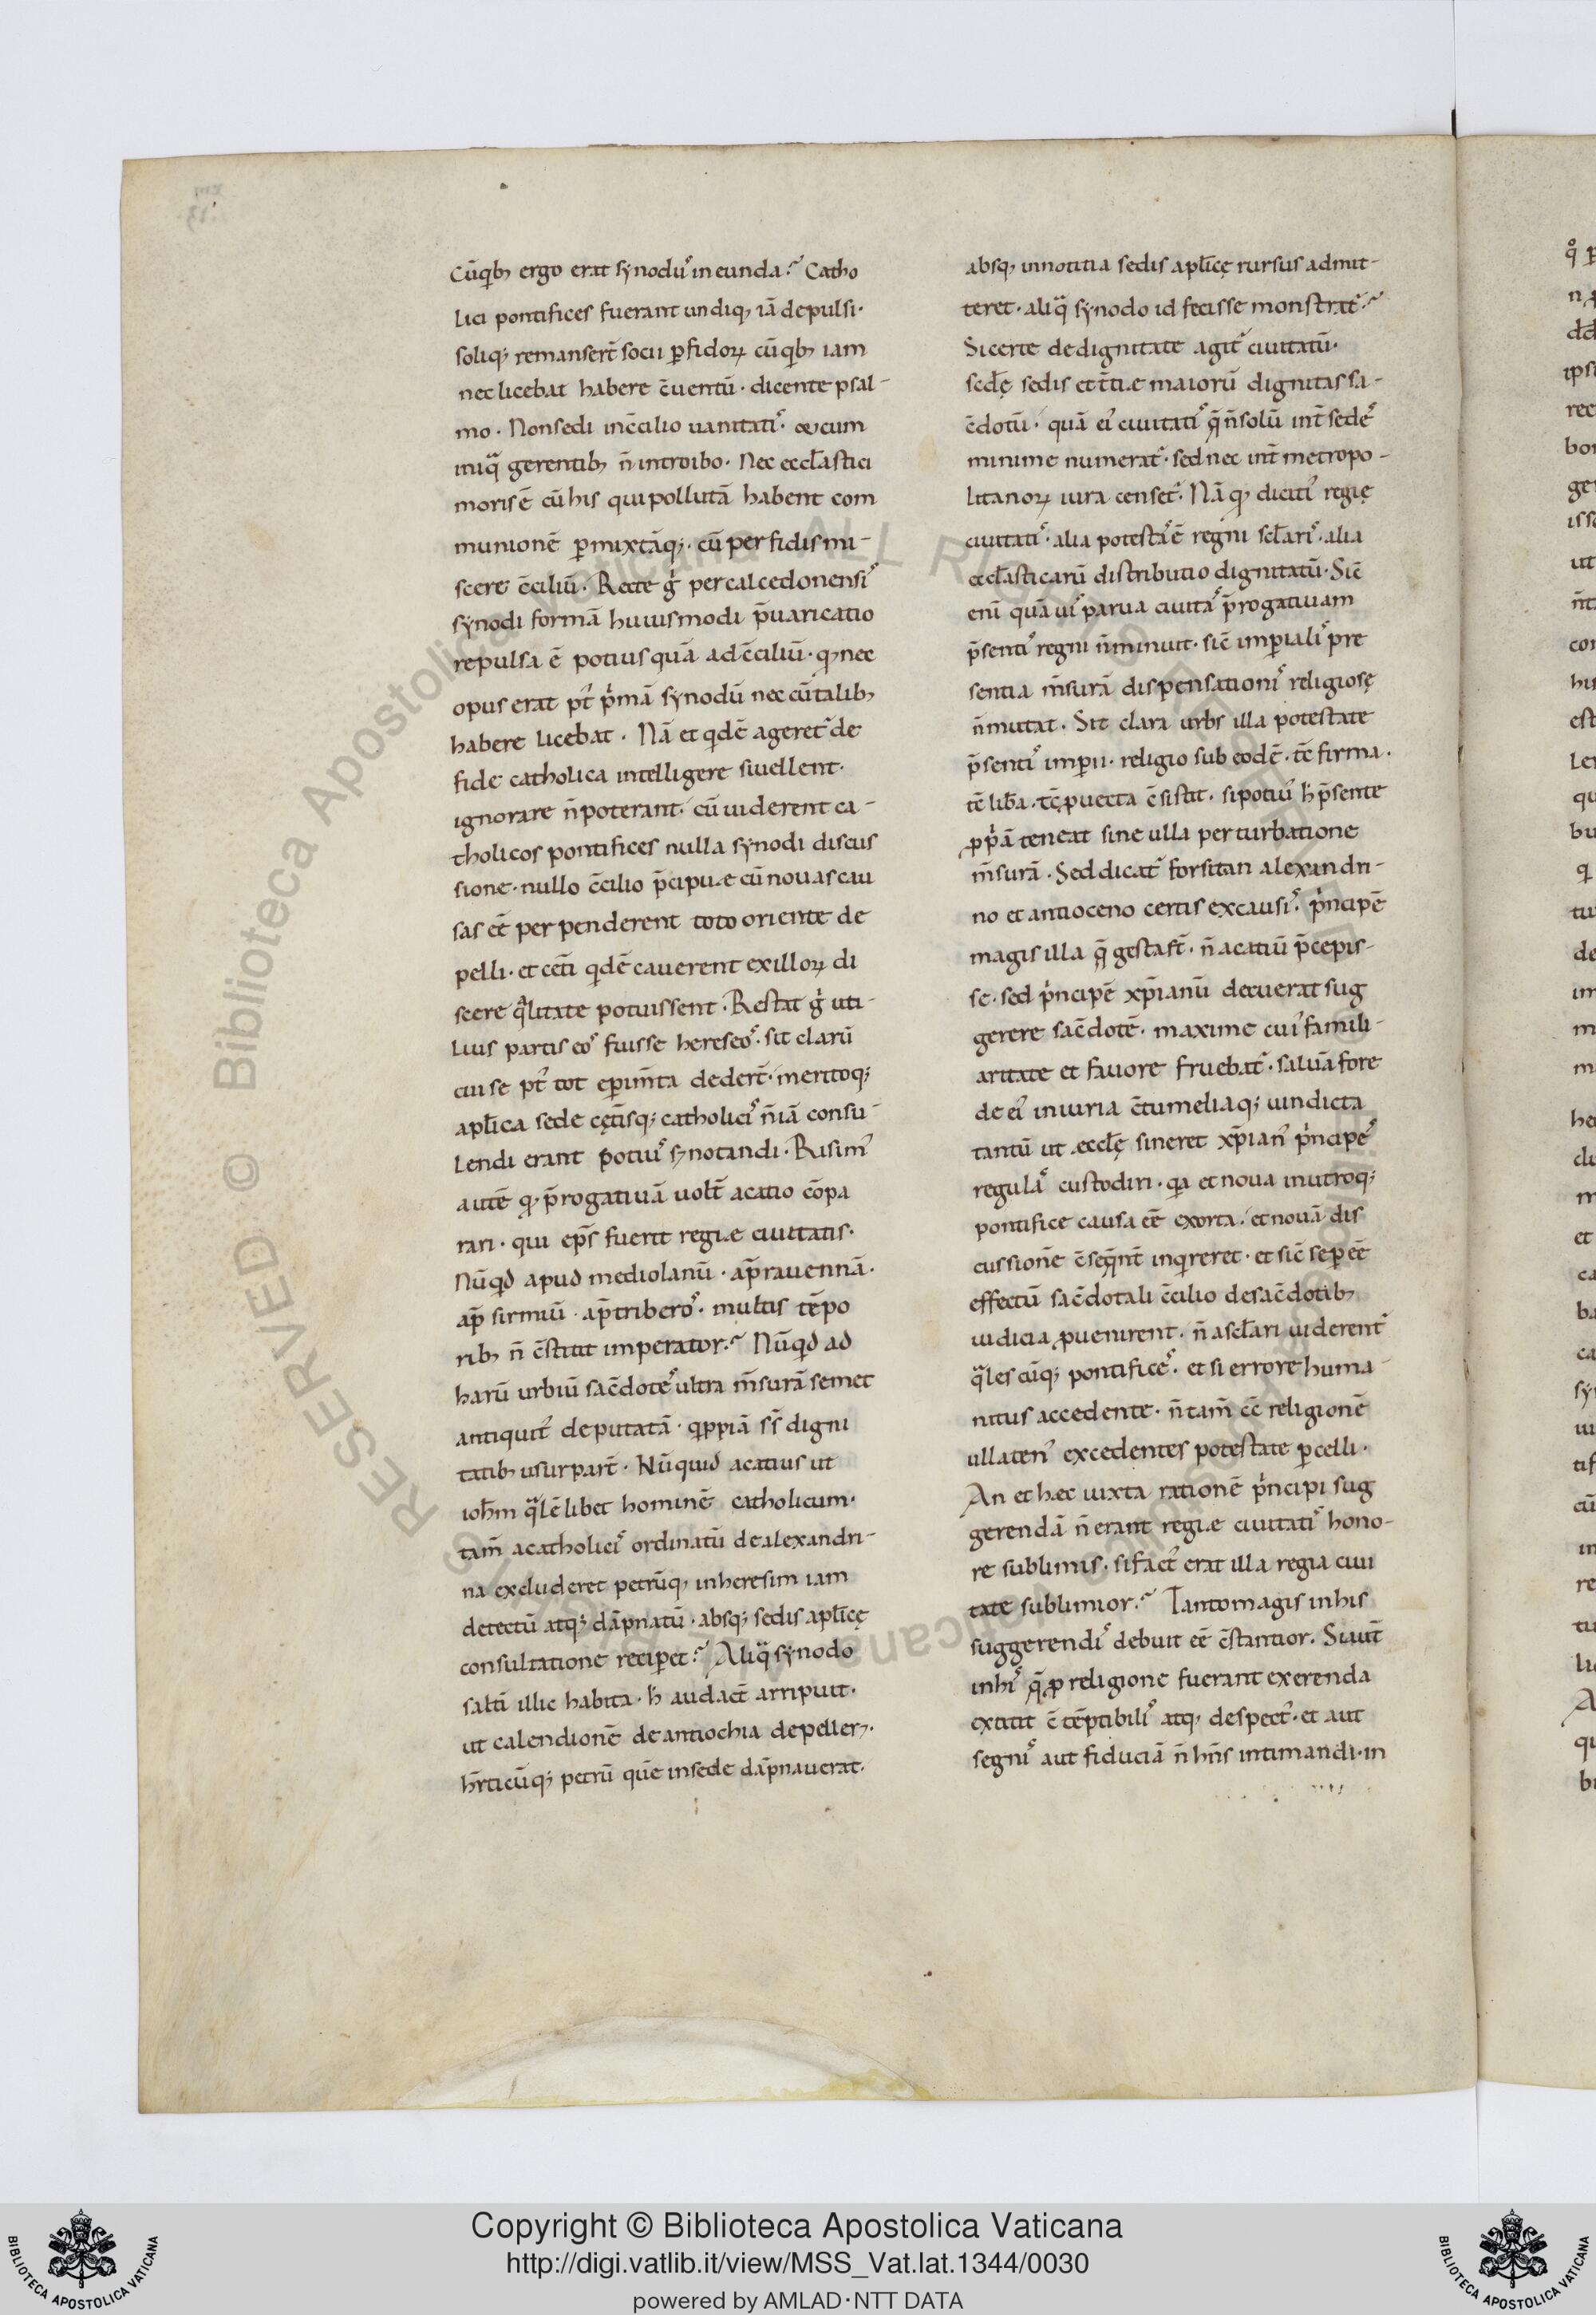 cū qb; ergo erat synodꝰ in eunda? Catho
lici pontifices fuerant undiq; iā depulsi·
soliq; remanserт̄ socii ꝑfidoꝝ cū qb; iam
nec licebat habere c̄uentū· dicente psal-
mo· Non sedi in c̄cilio uanitatiˢ· & cum
iniq̃ gerentib; n̄ introibo· Nec eccl̄astici
moris ē cū his qui pollutā habent com
munionē ꝑmixtāq;· cū perfidis mi-
scere c̄ciliū· Recte g̍ per calcedonensiˢ
synodi formā huiusmodi p̄uaricatio
repulsa ē potius quā ad c̄ciliū· q; nec
opus erat pt̄ p̍mā synodū nec cū talib;
habere licebat· Nā et qdē ageret᷑ de
fide catholica intelligere si uellent·
ignorare n̄ poterant· cū uiderent ca-
tholicos pontifices nulla synodi discus
sione· nullo c̄cilio p̄cipuae cū nouas cau
sas eē perpenderent toto oriente de
pelli· et cet̄i qdē cauerent ex illoꝝ di
scere q̍litate potuissent· Restat g̍ ut i-
llius partis eoˢ fuisse hereseoˢ· sit clarū
cui se pt̄ tot expim̄ta dedert̄· meritoq;
apl̄ica sede cet̄isq; catholiciˢ n̄ iā consu-
lendi erant potiuˢ qͣ notandi· Risimꝰ
autē q; p̄rogatiuā uolt̄ acatio cōpa
rari· qui ep̄s fuerit regiae ciuitatis·
Nūqd apud mediolanū· ap̄ rauennā·
ap̄ sirmiū· ap̄ triberoˢ· multis tēpo
rib; n̄ c̄stitit imperator? Nūqd ad
harū urbiū sac̄doteˢ ultra m̄surā semet
antiquitꝰ deputatā· qppiā ss̄ digni
tatib; usurpart̄· Nūquid acatius ut
ioh̄m q̃lē libet hominē catholicum·
tam̄ a catholiciˢ ordinatū de alexandri-
na excluderet petrūq; in heresim iam
detectū atq; dāpnatū· absq; sedis apl̄icę
consultatione reciꝑet? Aliq̃ synodo
saltī illic habita· h̄ audact̄ arripuit·
ut calendionē de antiochia depeller;·
h̄rticūq; petrū quē in sede dāpnauerat·
absq; innotitia sedis apl̄icę rursus admit-
teret· aliq̃ synodo id fecisse monstrat᷑?
Si certe de dignitate agit᷑ ciuitatū·
scd̄ę sedis et t̄tiae maiorū dignitas sa-
c̄dotū· quā eiꝰ ciuitatiˢ q̄ n̄ solū int̄ sedeˢ
minime numerat᷑· sed nec int̄ metropo-
litanoꝝ iura censet᷑· Nā q; dicitiˢ regię
ciuitatiˢ· alia potestaˢ ē regni scl̄ariˢ· alia
eccl̄asticarū distributio dignitatū· Sic̄
eni quāuiˢ parua ciuitaˢ p̄rogatiuam
p̄sentiˢ regni n̄ minuit· sic̄ imꝑialiˢ pre
sentia m̄surā dispensationiˢ religiosę
n̄ mutat· Sit clara urbs illa potestate
p̄sentiˢ imꝑii· religio sub eodē· tc̄ firma·
tc̄ lib̄a· tc̄ ꝓuecta c̄sistit· si potiuꝰ h̄ p̄sente
ꝓp̍ā teneat sine ulla perturbatione
m̄surā· Sed dicat᷑ forsitan alexandri-
no et antioceno certis ex causiˢ· p̍ncipē
magis illa q̄ gesta s̄t· n̄ acatiū p̄cepis-
se· sed p̍ncipē xp̄ianū decuerat sug
gerere sac̄dotē· maxime cuiꝰ famili-
aritate et fauore fruebat᷑· saluā fore
de eiꝰ iniuria c̄tumeliaq; uindicta
tantū ut aeccl̄ę sineret xp̄ianꝰ p̍ncipeˢ
regulaˢ custodiri· qa et noua in utroq;
pontifice causa eē exorta· et nouā dis
cussionē c̄seq̄nt̄ inqreret· et sic̄ seꝑ eē
effectū sac̄dotali c̄cilio de sac̄dotib;
iudicia ꝓuenirent· n̄ a scl̄ari uiderent᷑
q̃les cūq; pontificeˢ· et si errore huma-
nitus accedente· n̄ tam̄ c̄ religionē
ullatenꝰ excedentes potestate ꝑcelli·
An et haec iuxta rationē p̍ncipi sug
gerendā n̄ erant regiae ciuitatiˢ hono-
re sublimis· si factꝰ erat illa regia ciui
tate sublimior? Tanto magis in his
suggerendiˢ debuit eē c̄stantior· Si uit̄
in hiˢ q̄ ꝓ religione fuerant exerenda
extitit c̄tēptibiliˢ atq; despectꝰ· et aut
segniˢ aut fiduciā n̄ hn̄s intimandi· in
Copyright © Biblioteca Apostolica Vaticana
http://digi.vatlib.it/view/MSS_Vat.lat.1344/0030
powered by AMLAD·NTT DATA